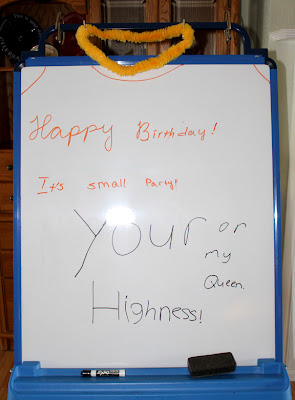 Happy Birthday!
It's small Party!
Your or
my
Queen.
Highness!
EXPO